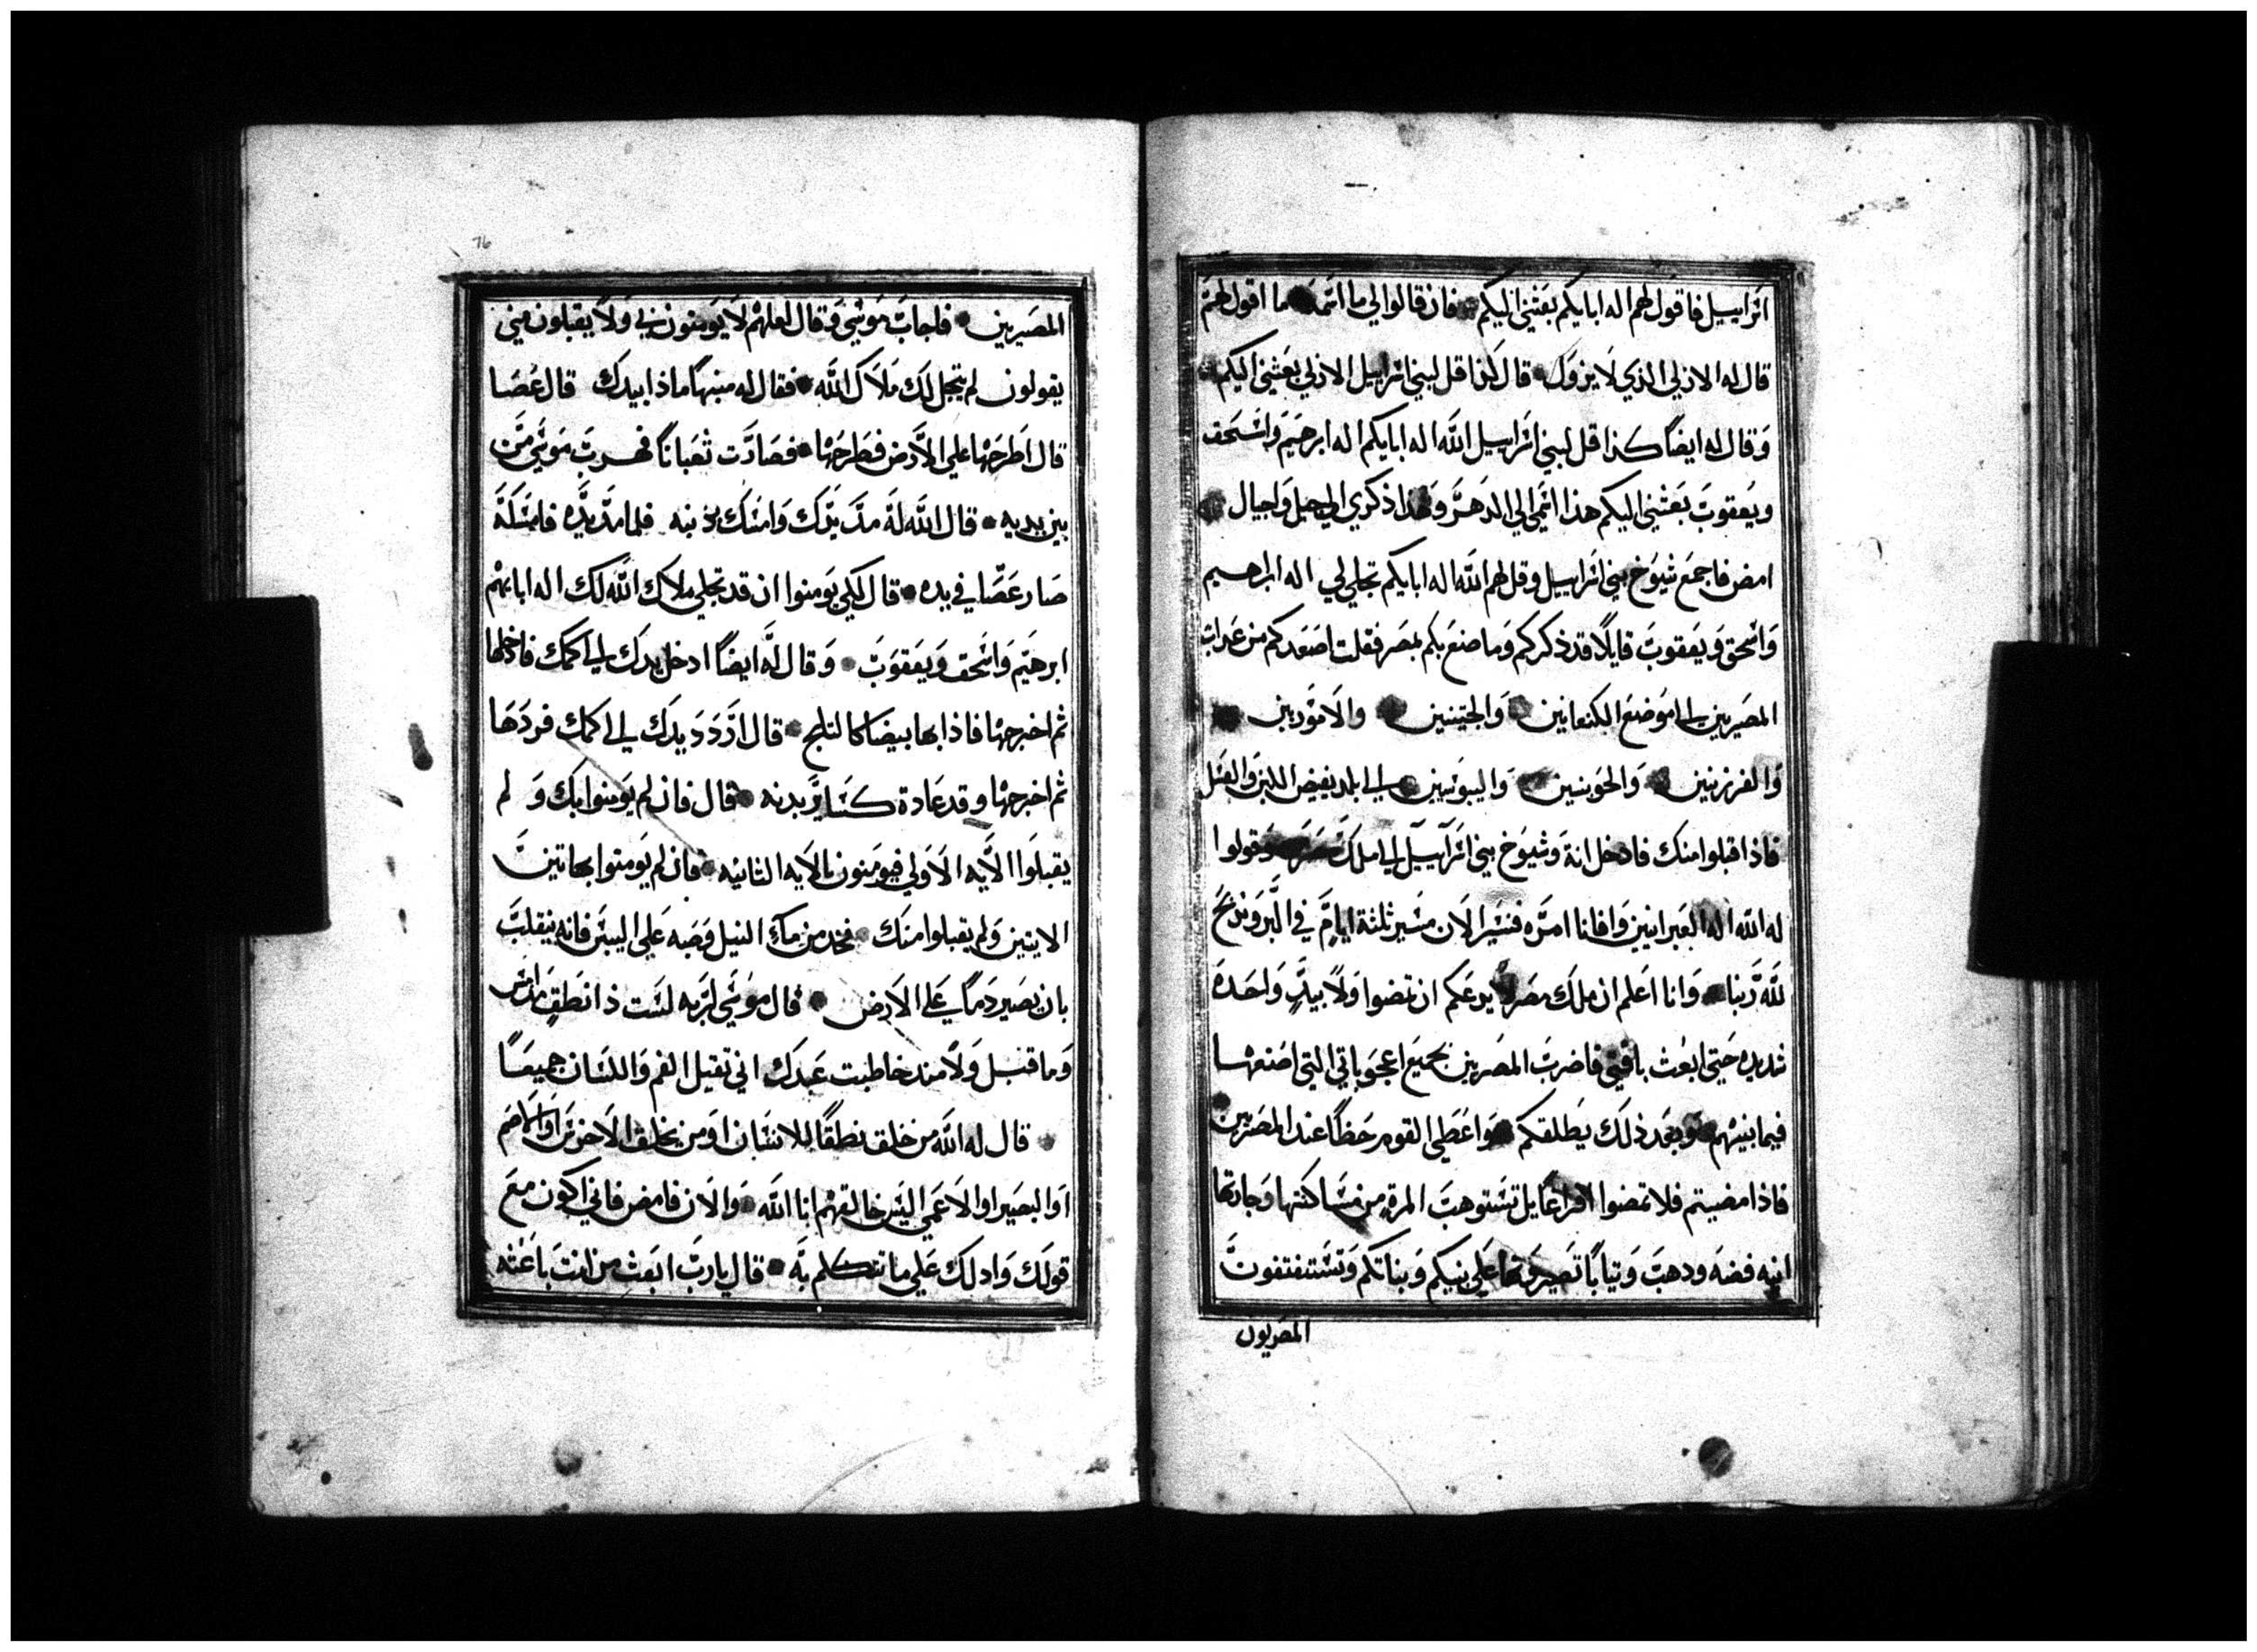 اسراييل فاقول لهم اله ابايكم بعثني اليكم فان قالوا لي ما اسمه ما اقول لهم
قال له الازلي الذي لا يزول قال كذا قل لبني اسراييل الازلي بعثني اليكم
وقال له ايضًا كذا قل لبني اسراييل الله اله ابايكم اله ابرهيم واسحق
ويعقوب بعثني اليكم هذا اسمي الي الدهر وهذا ذكري الي جيل واجيال
امض فاجمع شيوخ بني اسراييل وقل لهم الله اله ابايكم تجلي لي اله ابراهيم
واسحق ويعقوب قايلًا قد ذكركم وما صنع بكم بمصر فقلت اصعدكم من عداب
المصريين الي موضع الكنعانيين والحيتيين والاموريين
والفرزيين والحويين واليبوسيين الي بلد يفيض اللبن والعسل
فاذا قبلوا منك فادخل انة وشيوخ بني اسراييل الي ملك مصر وقولوا
له الله اله العبرانيين وافانا امره فنسير الان مسير ثلثة ايام في البر ونذبح
لله ربنا وانا اعلم ان ملك مصر لا يدعكم ان تمضوا ولا بيدٍ واحدة
شديده حتي ابعث بافتي فاضرب المصريين بجميع اعجوباتي التي اصنعها
فيما بينهم وبعد ذلك يطلقكم واعطي القوم حظًا عند المصريين
فاذا مضيتم فلا تمضوا افراغًا بل تستوهب المرة من مساكنها وجارتها
انيه فضه ودهب وتيابًا تصيرونها علي بنيكم وبناتكم وتستنفتفون
المصريون
76
المصيريين فاجاب موسي وقال لعلهم لا يومنون بي ولا يقبلون مني
يقولون لم يتجل لك ملاك الله فقال له منبهًا ماذا بيدك قال عصا
قال اطرحها علي الارض فطرحها فصارت ثعبانًا فهرب موسي من
بين يديه قال الله له مد يدك وامسك بذنبه فلما مد يده فامسكه
صار عصا في يده قال لكي يومنوا ان قد تجلي ملاك الله لك اله ابائهم
ابرهيم واسحق ويعقوب وقال له ايضًا ادخل يدك الي كمك فادخلها
ثم اخرجها فاذا بها بيضا كالتلج قال اردد يدك الي كمك فردها
ثم اخرجها وقد عادة كساير بدنه قال فان لم يومنوا بك و لم
يقبلوا الايه الاولي فيومنون بالايه الثانيه فان لم يومنوا بهاتين
الايتين ولم يقبلوا منك فخد من ماء النيل وصبه علي اليبس فانه ينقلب
بان يصير دمًا علي الارض قال موسي لربه لست ذا نطق من امس
وما قبل ولا مند خاطبت عبدك اني تقيل الفم واللسان جميعًا
قال له الله من خلق نطقًا للانسان او من يخلق الاخرس او الاصم
او البصير او الاعمي اليس خالقهم انا الله والان فامض فاني اكون مع
قولك وادلك علي ما تتكلم به قال يا رب ابعث من انت باعثه